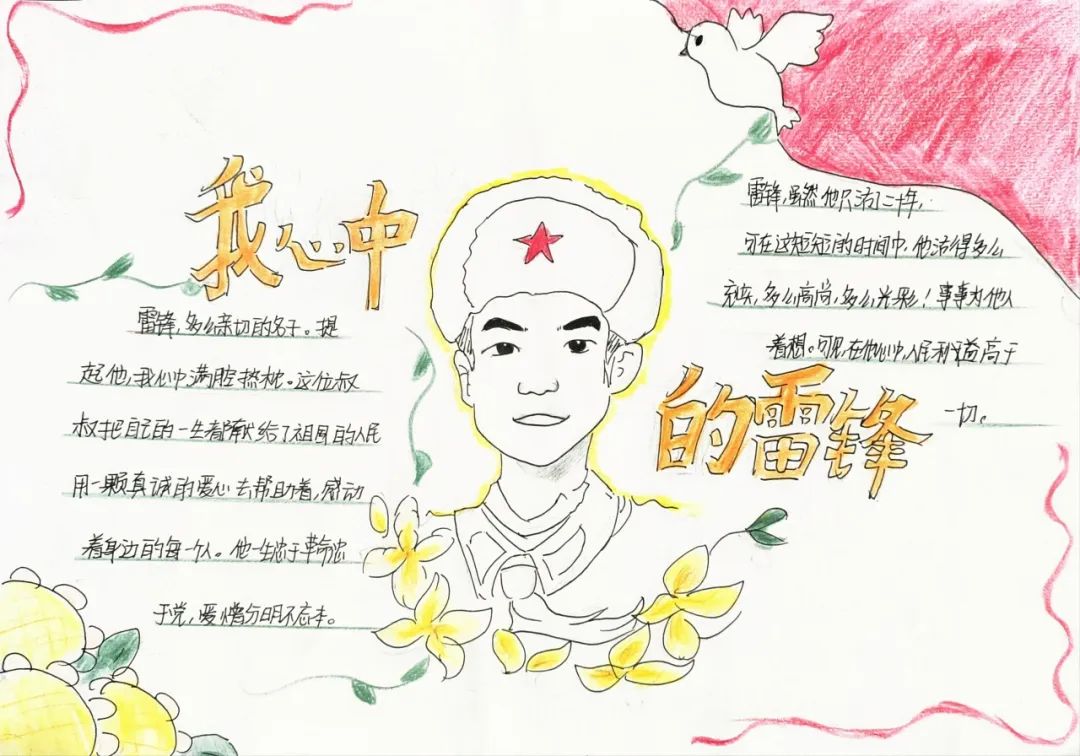 我心中
的雷锋
雷锋,多么亲切的名字。提
起他,我心中满腔热忱。这位叔
叔把自己的一生都奉献给了祖国的人民
用一颗真诚的爱心去帮助着,感动
着身边的每一个人。他一生忠于革命忠
于党,爱憎分明不忘本。
雷锋,虽然他只活了二十年,
可在这短短的时间中,他活得多么
充实,多么高尚,多么光彩!事事为他人
着想。可见,在他心中,人民利益高于
一切。